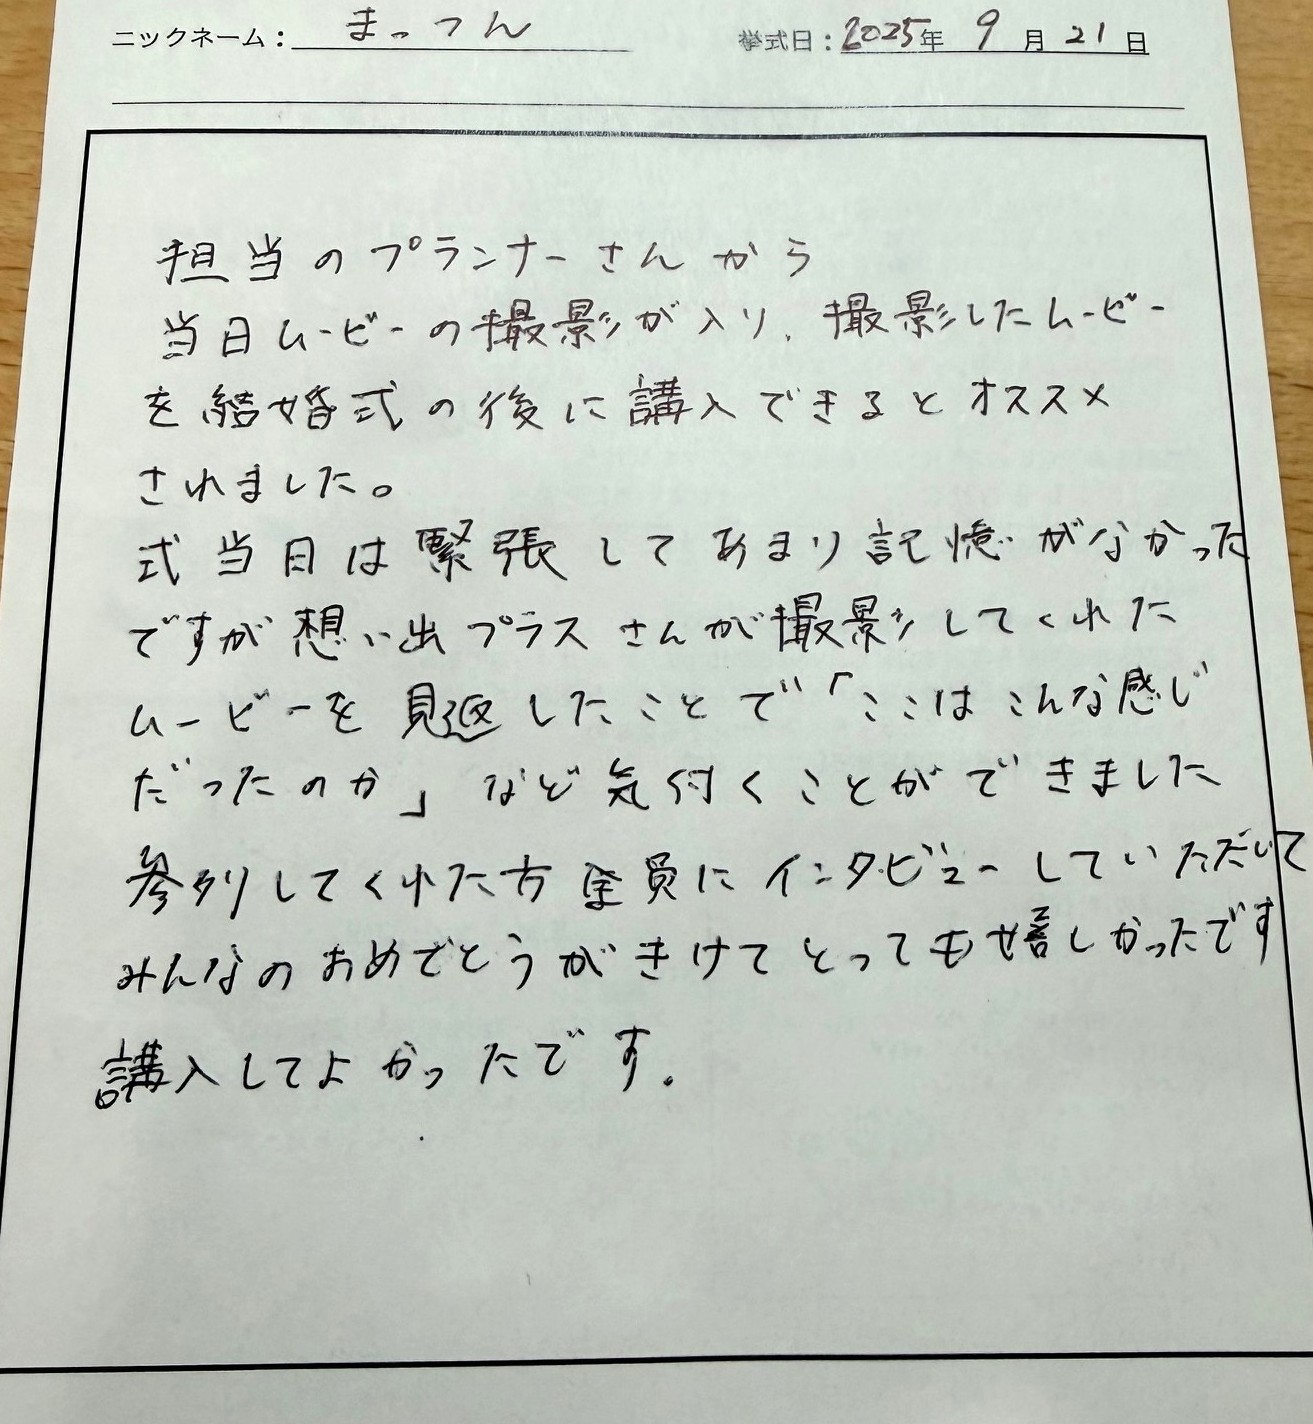 ニックネーム： まっつん 挙式日：2025年 9月21日
担当のプランナーさんから
当日ムービーの撮影が入り、撮影したムービー
を結婚式の後に講入できるとオススメ
されました。
式当日は緊張してあまり記憶がなかった
ですが想い出プラスさんが撮影してくれた
ムービーを見返したことで「ここはこんな感じ
だったのか」など気付くことができました
参列してくれた方全員にインタビューしていただいて
みんなのおめでとうがきけてとっても嬉しかったです
講入してよかったです.